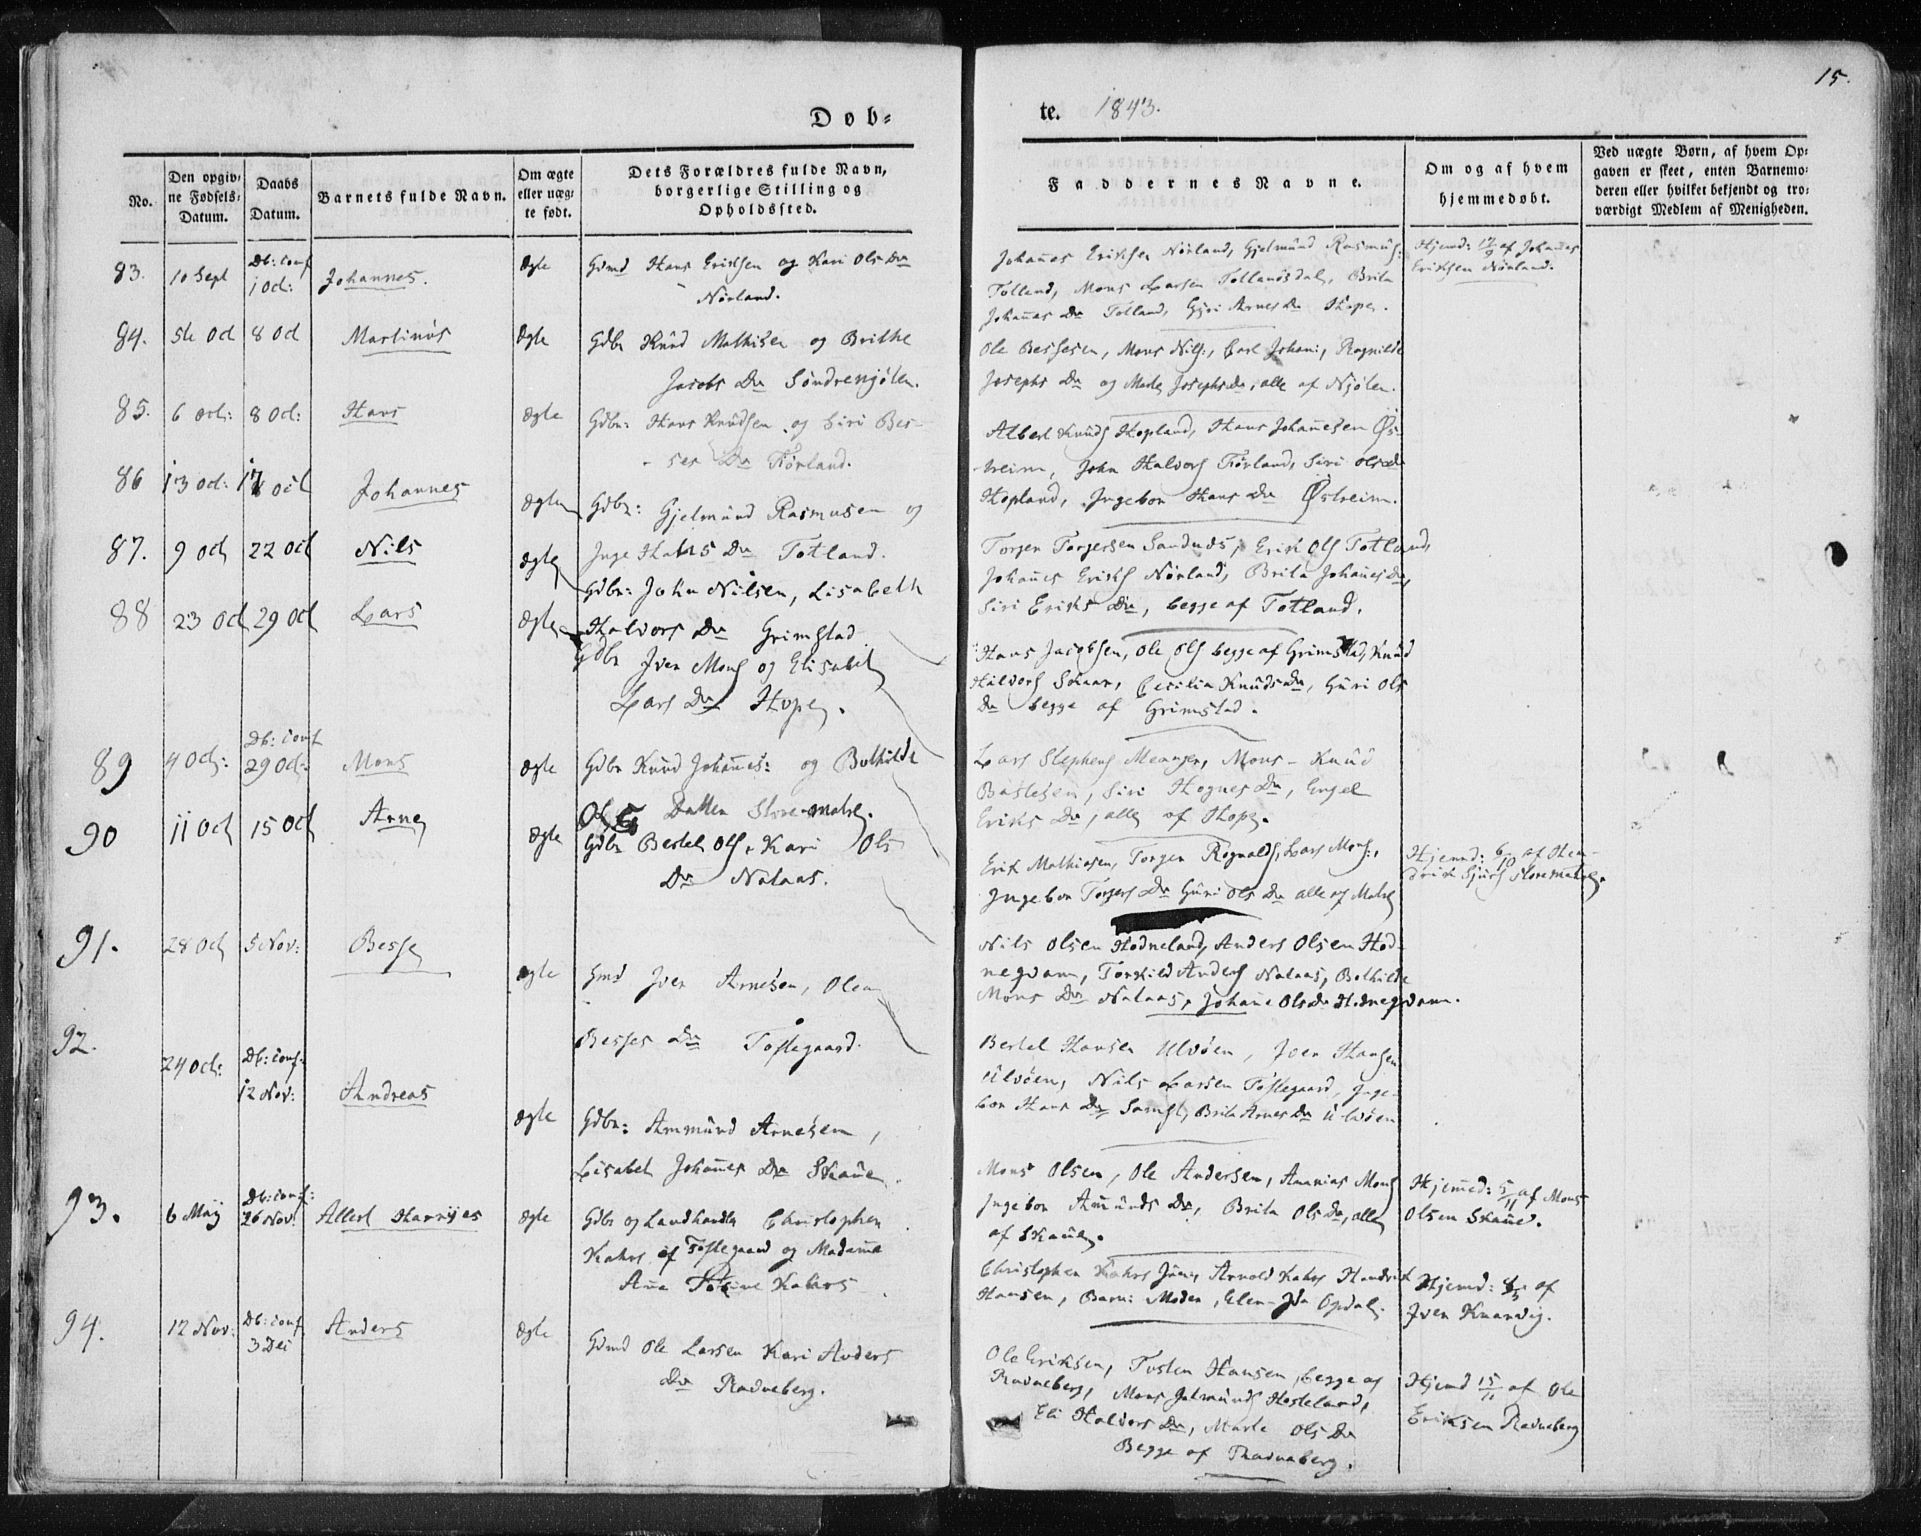 15.
Døb-
te. 1843.
No.
Den opgiv-
ne Fødsels-
Datum.
Daabs
Datum.
Barnets fulde Navn.
Om ægte
eller uæg-
te født.
Dets Forældres fulde Navn,
borgerlige Stilling og
Opholdssted.
Faddernes Navne.
Om og af hvem
hjemmedøbt.
Ved uægte Børn, af hvem Op-
gaven er skeet, enten Barnemo-
deren eller hvilket bekjendt og tro-
værdigt Medlem af Menigheden.
83. 10 Sept Db: conf
1 Oct: Johannes. Ægte
Gdmd Hans Eriksen og Kari Ols Dr
Nörland.
Johanes Eriksen Nörland, Gjelmund Rasmus:
Totland, Mons Larsen Totlandsdal, Brita
Johanes Dr Totland, Gjøri Arnes Dr Hope.
Hjemd: 17/9 af Johanes
Eriksen Nörland.
84. 5te Oct 8 Oct Martinus Ægte
Gdbr Knud Mathisen og Brithe
Jacobs Dr Søndrenjølen.
Ole Bessesen, Mons Nils:, Carl Johan:, Ragnilde
Josephs Dr og Marte Josephs Dr, alle af Njølen.
85. 6 Oct: 8 Oct: Hans Ægte
Gdbr: Hans Knudsen og Siri Bes-
ses Dr Rörland.
Albert Knuds Hopland, Hans Johanesen Øs-
treim, John Halvors Rörland, Siri Ols Dr
Hopland, Ingebor Hans Dr Østreim.
86 13 Oct: 17 Oct Johannes Ægte
Gdbr: Gjelmund Rasmusen og
Inge Hans Dr Totland.
Torger Torgersen Sandnes, Erik Ols Totland,
Johanes Eriks Nörland, Brita Johanes Dr,
Siri Eriks Dr, begge af Totland.
87. 9 Oct 22 Oct Nils Ægte
Gdbr: John Nilsen, Lisabeth
Halvors Dr Grimstad
Hans Jacobsen, Ole Ols begge af Grimstad, Knud
Halvors Skaar, Cecilia Knuds Dr, Guri Ols
Dr begge af Grimstad.
88 23 Oct 29 Oct Lars Ægte
Gdbr Iver Mons og Elisabet
Lars Dr Hope.
Lars Stephens Meanger, Mons - Knud
Baslesen, Siri Hognes Dr, Engel
Eriks Dr, alle af Hope.
89 4 Oct: Db: conf
29 Oct: Mons Ægte
Gdbr Knud Johanes: og Bothilde
Ols Datter Store-Matre.
Erik Mathiasen, Torger Rognalds, Lars Mons:,
Ingebor Torgers Dr Guri Ols Dr alle af Matre
Hjemd: 6/10 af Hen-
drik Sjurs Storematre.
90 11 Oct 15 Oct Arne Ægte
Gdbr Bertel Ols, Kari Ols
Dr Nataas.
Nils Olsen Hodneland, Anders Olsen Hod-
negvam, Torkild Anders Nataas, Bothilde
Mons Dr Nataas, Johane Ols Dr Hodnegvam.
91. 28 Oct 5 Nov: Besse Ægte
Gmd Iver Arnesen, Olea
Besses Dr Toftegaard.
Bertel Hansen Ulvøen, Iver Hansen
Ulvøen, Nils Larsen Toftegaard, Inge-
bor Hans Dr, Brita Arnes Dr Ulvøen
92. 24 Oct: Db: conf:
12 Nov: Andreas Ægte
Gdbr: Ammund Arnesen,
Lisabet Johanes Dr Skaue.
Mons Olsen, Ole Andersen, Ananias Mons
Ingebor Amunds Dr, Brita Ols Dr, alle
af Skaue.
Hjemed: 5/11 af Mons
Olsen Skaue.
93. 6 Maj Db: conf:
26 Nov: Allert Harrijes Ægte
Gdbr og Landhandler Christopher
Kahrs af Toftegaard og Madame
Ana Kahrs
Christopher Kahrs Jun:, Arnold Kahrs Hendrik
Hansen, Barn: Moder, Elen-Ida Opdal.
Hjemd: af
Iver Knarvig.
94. 12 Nov: Db: conf
3 Dec Anders Ægte
Gdmd Ole Larsen Kari Anders
Dr Radneberg.
Ole Eriksen, Tosten Hansen, begge af
Radneberg, Mons Jelmunds Hosteland,
Eli Halvors Dr, Marte Ols Dr
Begge af Radneberg.
Hjemd 15/11 af Ole
Eriksen Radneberg